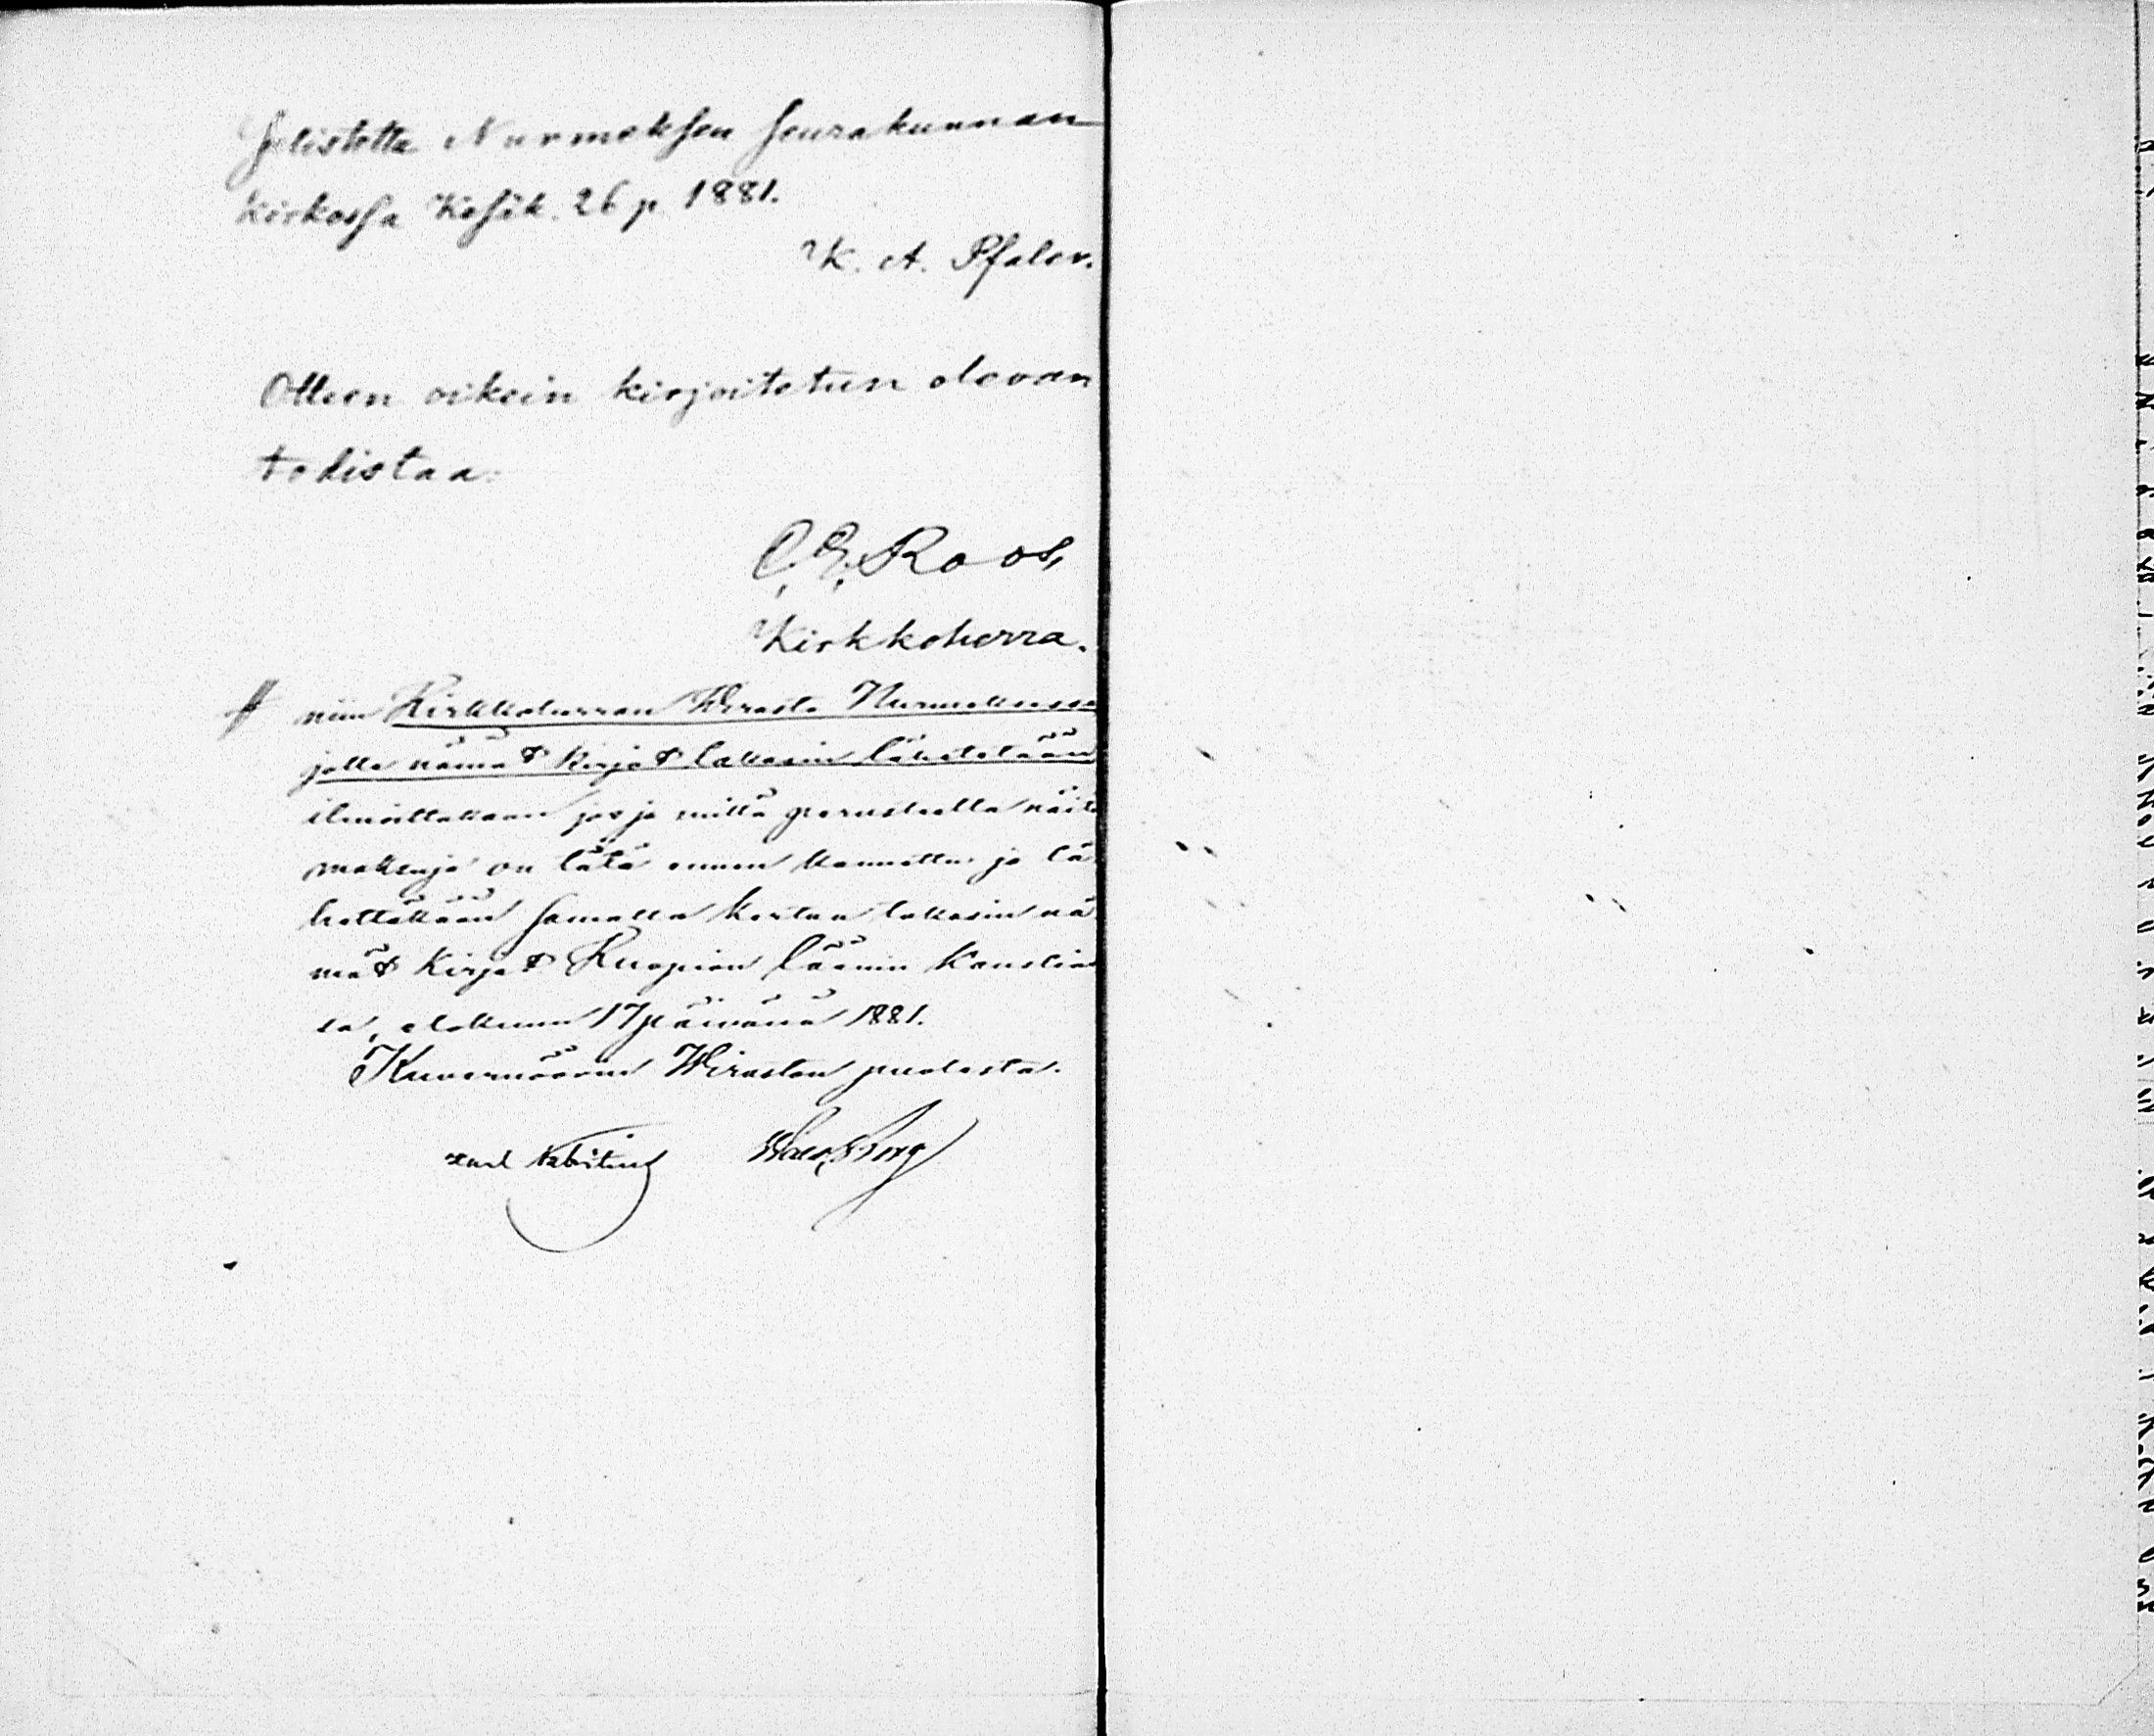 Julistettu Nurmeksen seurakunnan
kirkossa Kesäk. 26 p. 1881.
K. A. Pfaler.
Olleen oikein kirjoitetun olevan
todistaa:
C. E. Roos,
Kirkkoherra.
# niin Kirkkoherran Wirasto Nurmeksessa
jolle nämät kirjat takasin lähetetään
ilmoittakaan jos ja millä perusteella näitä
maksuja on tätä ennen kannettu ja lä-
hettäkään samalla kertaa takasin nä-
mät kirjat Kuopion läänin Kanslias-
sa, elokuun 17 päivänä 1881.
Kuvernöörin Wiraston puolesta.